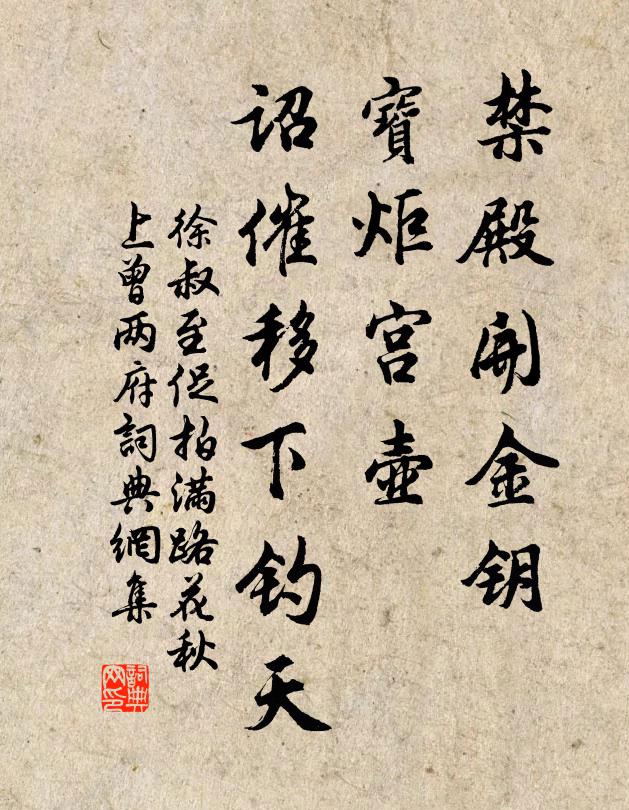 禁殿開金钥
寶炬宫壺
詔催移下钓天
徐叔至促拍滿路花秋
上曾两府詞典網集
詞典网印